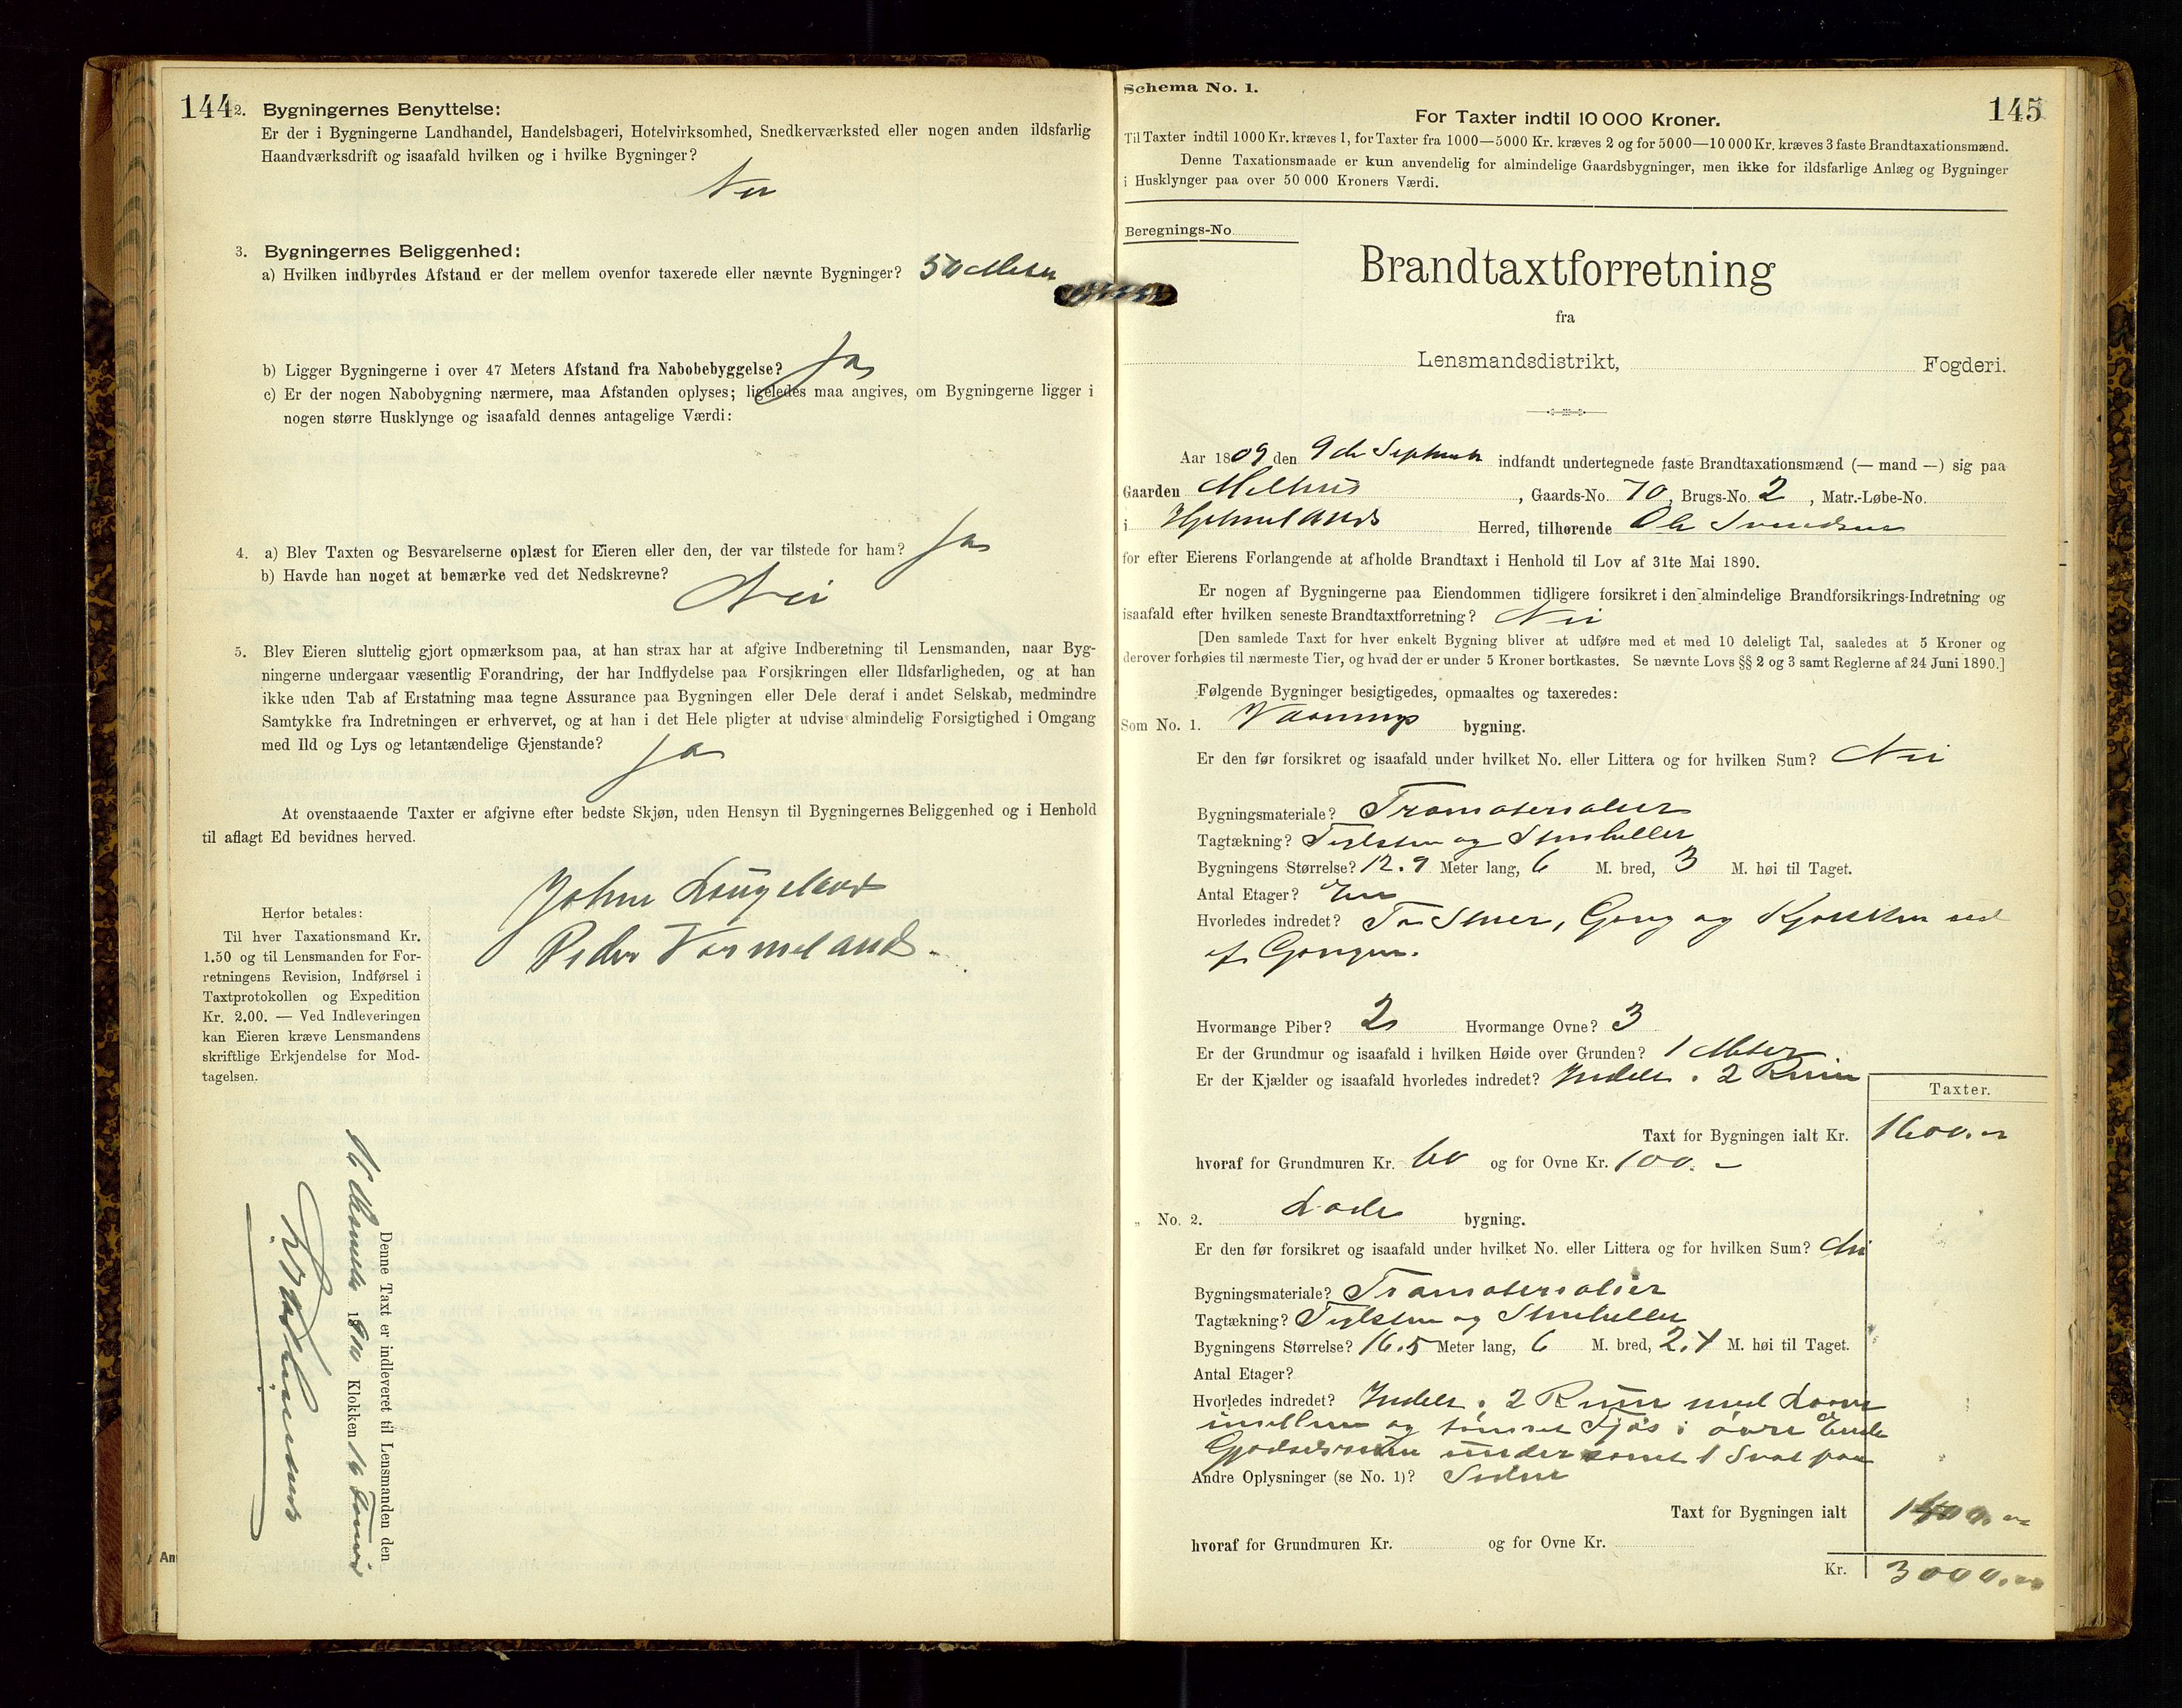 144
2. Bygningernes Benyttelse:
Er der i Bygningerne Landhandel, Handelsbageri, Hotelvirksomhed, Snedkerværksted eller nogen anden ildsfarlig
Haandværksdrift og isaafald hvilken og i hvilke Bygninger?
Nei
3. Bygningernes Beliggenhed:
a) Hvilken indbyrdes Afstand er der mellem ovenfor taxerede eller nævnte Bygninger? 50 Meter
b) Ligger Bygningerne i over 47 Meters Afstand fra Nabobebyggelse? Ja
c) Er der nogen Nabobygning nærmere, maa Afstanden oplyses; ligeledes maa angives, om Bygningerne ligger i
nogen større Husklynge og isaafald dennes antagelige Værdi:
4. a) Blev Taxten og Besvarelserne oplæst for Eieren eller den, der var tilstede for ham? Ja
b) Havde han noget at bemærke ved det Nedskrevne? Nei
5. Blev Eieren sluttelig gjort opmærksom paa, at han strax har at afgive Indberetning til Lensmanden, naar Byg-
ningerne undergaar væsentlig Forandring, der har Indflydelse paa Forsikringen eller Ildsfarligheden, og at han
ikke uden Tab af Erstatning maa tegne Assurance paa Bygningen eller Dele deraf i andet Selskab, medmindre
Samtykke fra Indretningen er erhvervet, og at han i det Hele pligter at udvise almindelig Forsigtighed i Omgang
med Ild og Lys og letantændelige Gjenstande? Ja
At ovenstaaende Taxter er afgivne efter bedste Skjøn, uden Hensyn til Bygningernes Beliggenhed og i Henhold
til aflagt Ed bevidnes herved.
Peder Varmeland.
Herfor betales:
Til hver Taxationsmand Kr.
1.50 og til Lensmanden for For-
retningens Revision, Indførsel i
Taxtprotokollen og Expedition
Kr. 2.00. — Ved Indleveringen
kan Eieren kræve Lensmandens
skriftlige Erkjendelse for Mod-
tagelsen.
Denne Taxt er indleveret til Lensmanden den
Klokken
Schema No. 1.
145
For Taxter indtil 10 000 Kroner.
Til Taxter indtil 1000 Kr. kræves 1, for Taxter fra 1000—5000 Kr. kræves 2 og for 5000—10 000 Kr. kræves 3 faste Brandtaxationsmænd.
Denne Taxationsmaade er kun anvendelig for almindelige Gaardsbygninger, men ikke for ildsfarlige Anlæg og Bygninger
i Husklynger paa over 50 000 Kroners Værdi.
Beregnings-No
Brandtaxtforretning
fra
Lensmandsdistrikt, Fogderi.
Aar 1809 den 9de September indfandt undertegnede faste Brandtaxationsmænd (— mand —) sig paa
Gaarden Melhus, Gaards-No. 70, Brugs-No. 2, Matr.-Løbe-No.
i Hjelmelands Herred, tilhørende Ole Svendsen
for efter Eierens Forlangende at afholde Brandtaxt i Henhold til Lov af 31te Mai 1890.
Er nogen af Bygningerne paa Eiendommen tidligere forsikret i den almindelige Brandforsikrings-Indretning og
isaafald efter hvilken seneste Brandtaxtforretning? Nei
[Den samlede Taxt for hver enkelt Bygning bliver at udføre med et med 10 deleligt Tal, saaledes at 5 Kroner og
derover forhøies til nærmeste Tier, og hvad der er under 5 Kroner bortkastes. Se nævnte Lovs §§ 2 og 3 samt Reglerne af 24 Juni 1890.]
Følgende Bygninger besigtigedes, opmaaltes og taxeredes:
Som No. 1. Vaanings bygning.
Er den før forsikret og isaafald under hvilket No. eller Littera og for hvilken Sum? Nei
Bygningsmateriale? Træmaterialier
Tagtækning? Teglsten og Stenheller
Bygningens Størrelse? 12.9 Meter lang, 6 M. bred, 3 M. høi til Taget.
Antal Etager? En
Hvorledes indredet? To Stuer, Gang og Kjøkken ved
af Gangen.
Hvormange Piber? 2 Hvormange Ovne? 3
Er der Grundmur og isaafald i hvilken Høide over Grunden? 1 Meter
Er der Kjælder og isaafald hvorledes indredet? Indelt i 2 Rum
Taxter.
Taxt for Bygningen ialt Kr. 1600.-
hvoraf for Grundmuren Kr. 60 og for Ovne Kr. 100.-
„ No. 2. Lade bygning.
Er den før forsikret og isaafald under hvilket No. eller Littera og for hvilken Sum? Nei
Bygningsmateriale? Træmaterialier
Tagtækning? Teglsten og Stenheller
Bygningens Størrelse? 16.5 Meter lang, 6 M. bred, 2.4 M. høi til Taget.
Antal Etager?
Hvorledes indredet? Indelt i 2 Rum med Laave
imellem og tømret Fjøs i øvre Ende
Gjødselrum under samt 1 Sval paa
Andre Oplysninger (se No. 1)? Siden
Taxt for Bygningen ialt 1400.-
hvoraf for Grundmuren Kr. og for Ovne Kr.
Kr. 3000.-